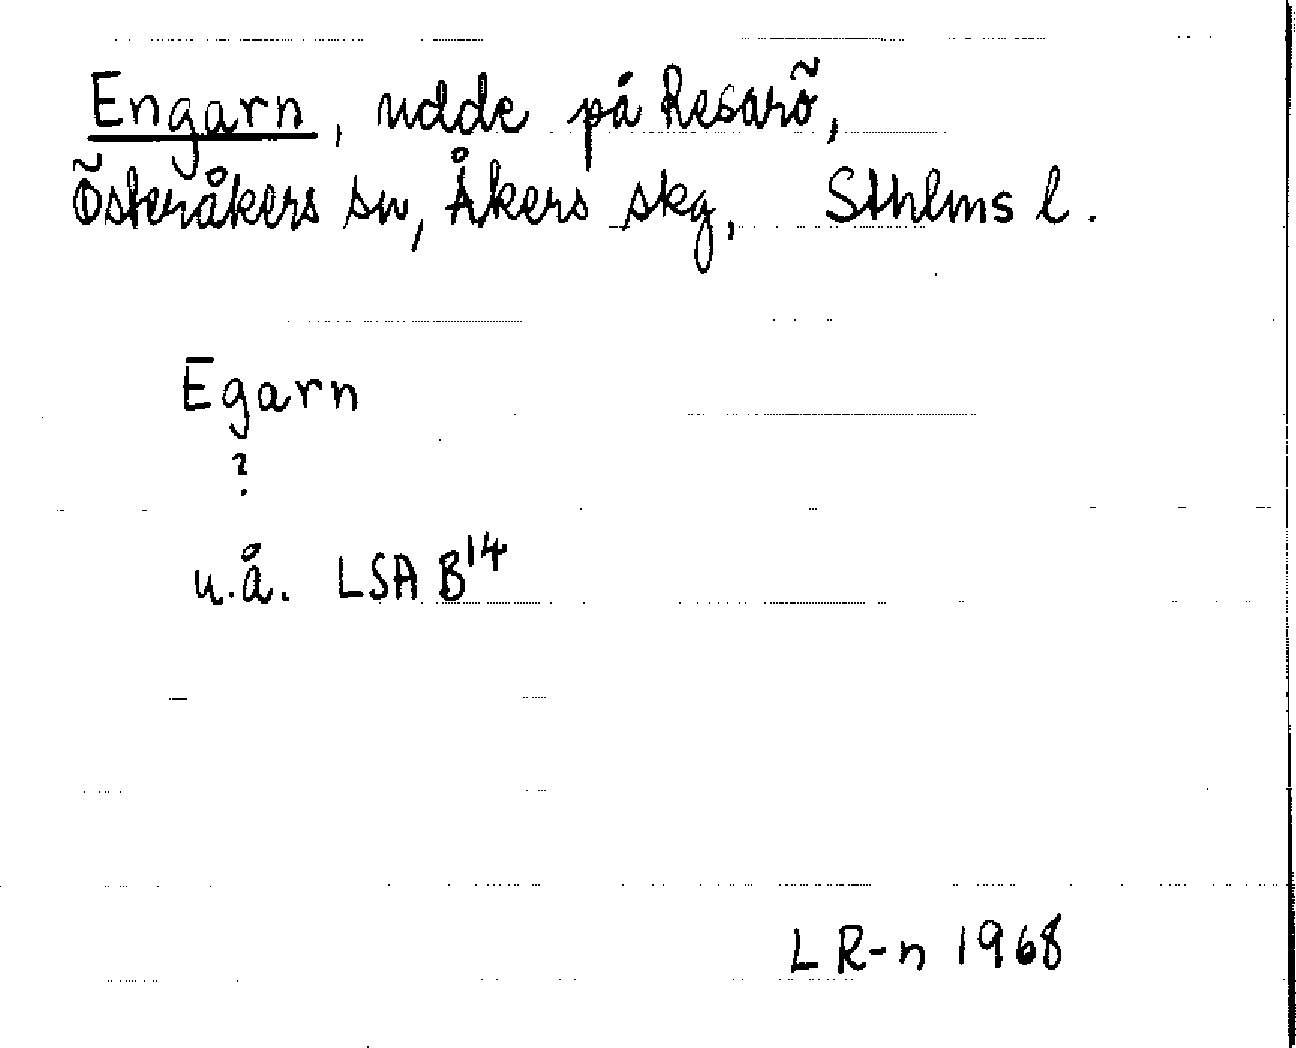 Engarn, udde på Resarö,
Österåkers sn, Åkers skg, Sthlms l.
Egarn
?
u.å. LSA B14
LR-n 1968